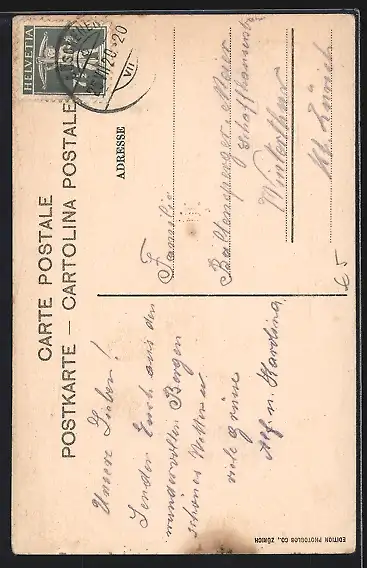 CARTE POSTALE
POSTKARTE — CARTOLINA POSTALE
HELVETIA
7½
20
VII
ADRESSE
Unsere Lieben!
Sender Euch aus den
wundervollen Bergen
schönes Wetter u
viele Grüsse
Alf. u. Karolina
Familie
Baltensperger-Meier
Schaffhauserstr.
Winterthur
Kt. Zürich
65
EDITION PHOTOGLOB CO., ZÜRICH